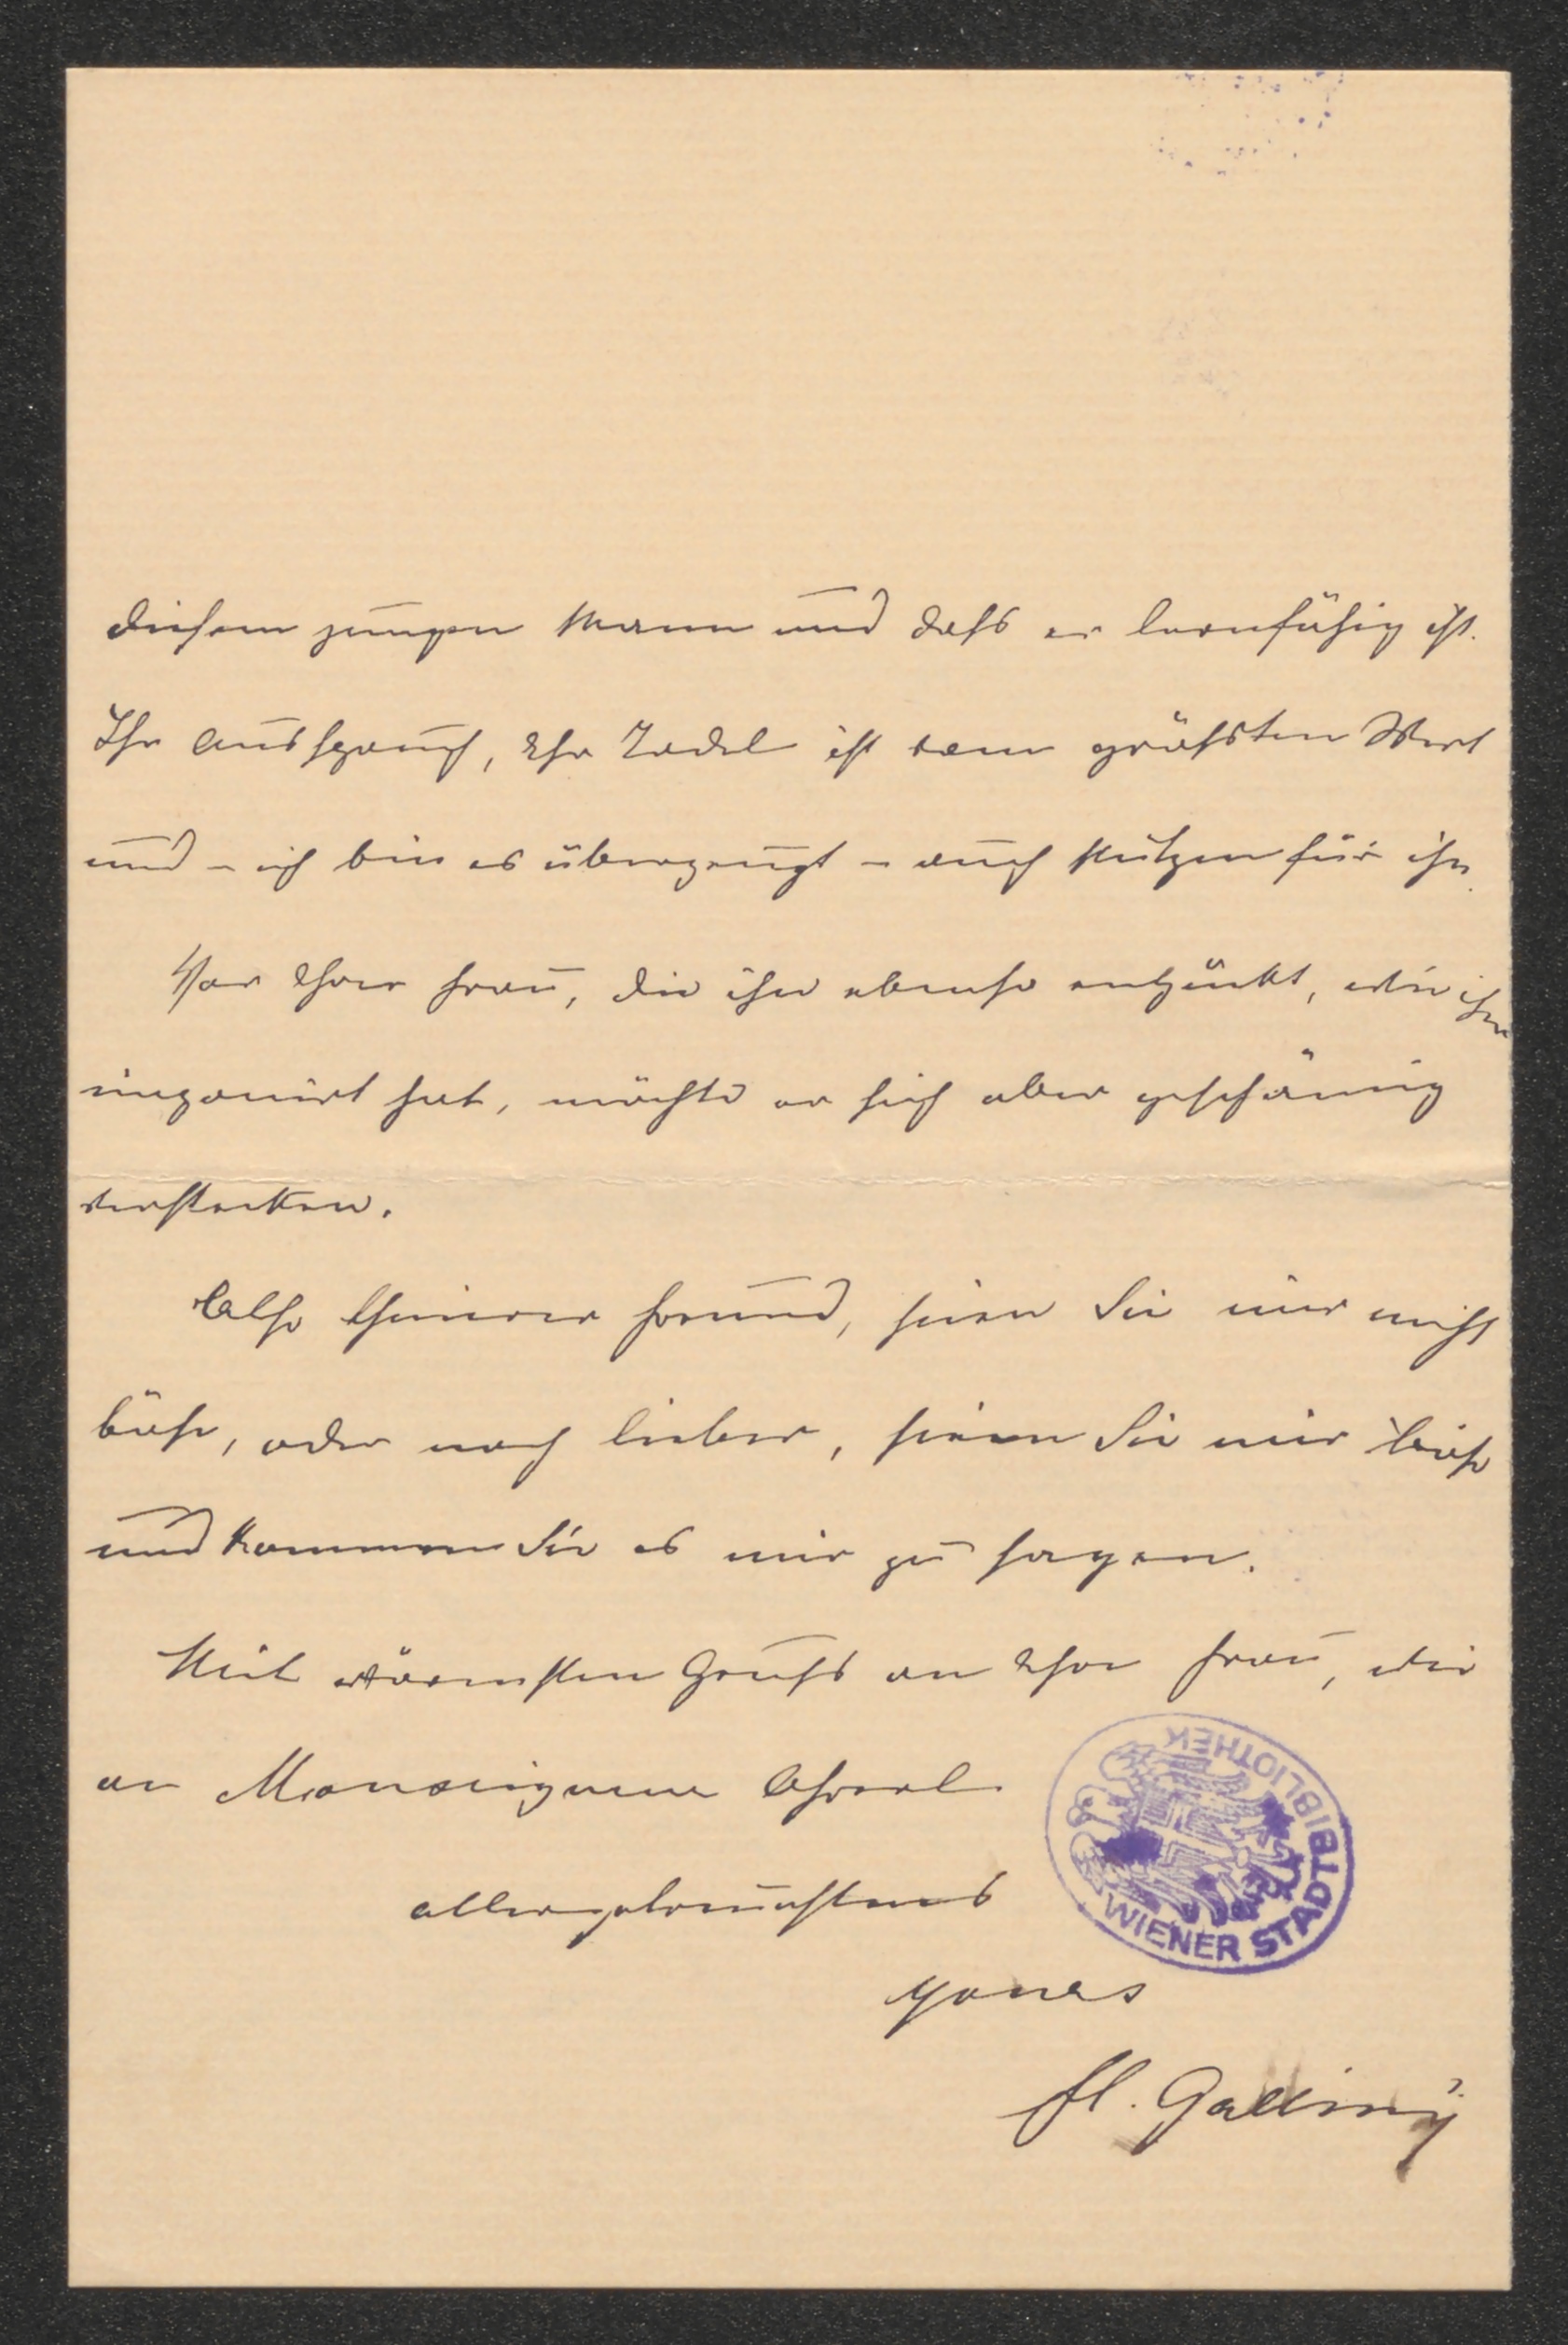 diesem jungen Mann und dass er lernfähig ist.
Ihr Ausspruch, Ihr Tadel ist vom größten Wert
und – ich bin es überzeugt – auch Nutzen für ihn.
Vor Ihrer Frau, die ihn ebenso entzückt, wie ihm
imponirt hat, möchte er sich aber geschämig
verstecken.
Also theurer Freund, seien Sie mir nicht
böse, oder noch lieber, seien Sie mir böse
und kommen Sie es mir zu sagen.
Mit wärmsten Gruß an Ihre Frau, wie
an Monseigneur
allergetreuestens
Yours
fl. Galliny
WIENER STADTBIBLIOTHEK